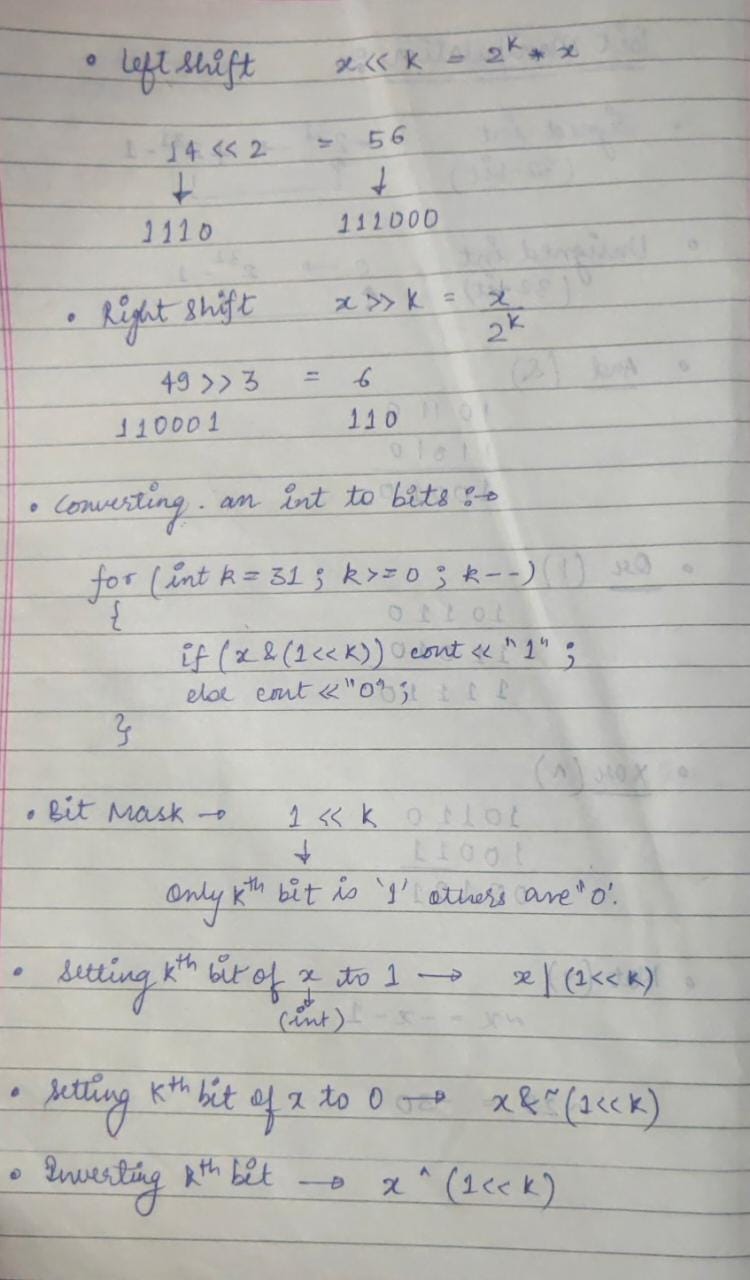 • Left Shift x<< K = 2^K * x
14 << 2 = 56
↓ ↓
1110 111000
• Right Shift x >> K = x/2^K
49 >> 3 = 6
110001 110
• Converting. an int to bits :→
for (int k = 31 ; k >= 0 ; k--)
{
if (x & (1<<k)) cout << "1" ;
else cout << "0" ;
}
• Bit Mask → 1 << K
↓
Only Kth bit is '1' others are "0'.
• Setting Kth bit of x to 1 → x | (1<<K)
↓
(int)
• Setting Kth bit of x to 0 → x & ~(1<<K)
• Inverting Kth bit → x ^ (1<<K)